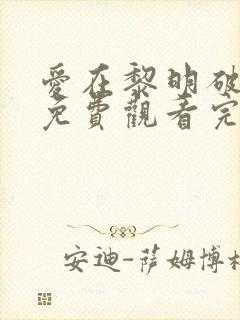 愛在黎明破
免費觀看完
安迪-薩姆博格